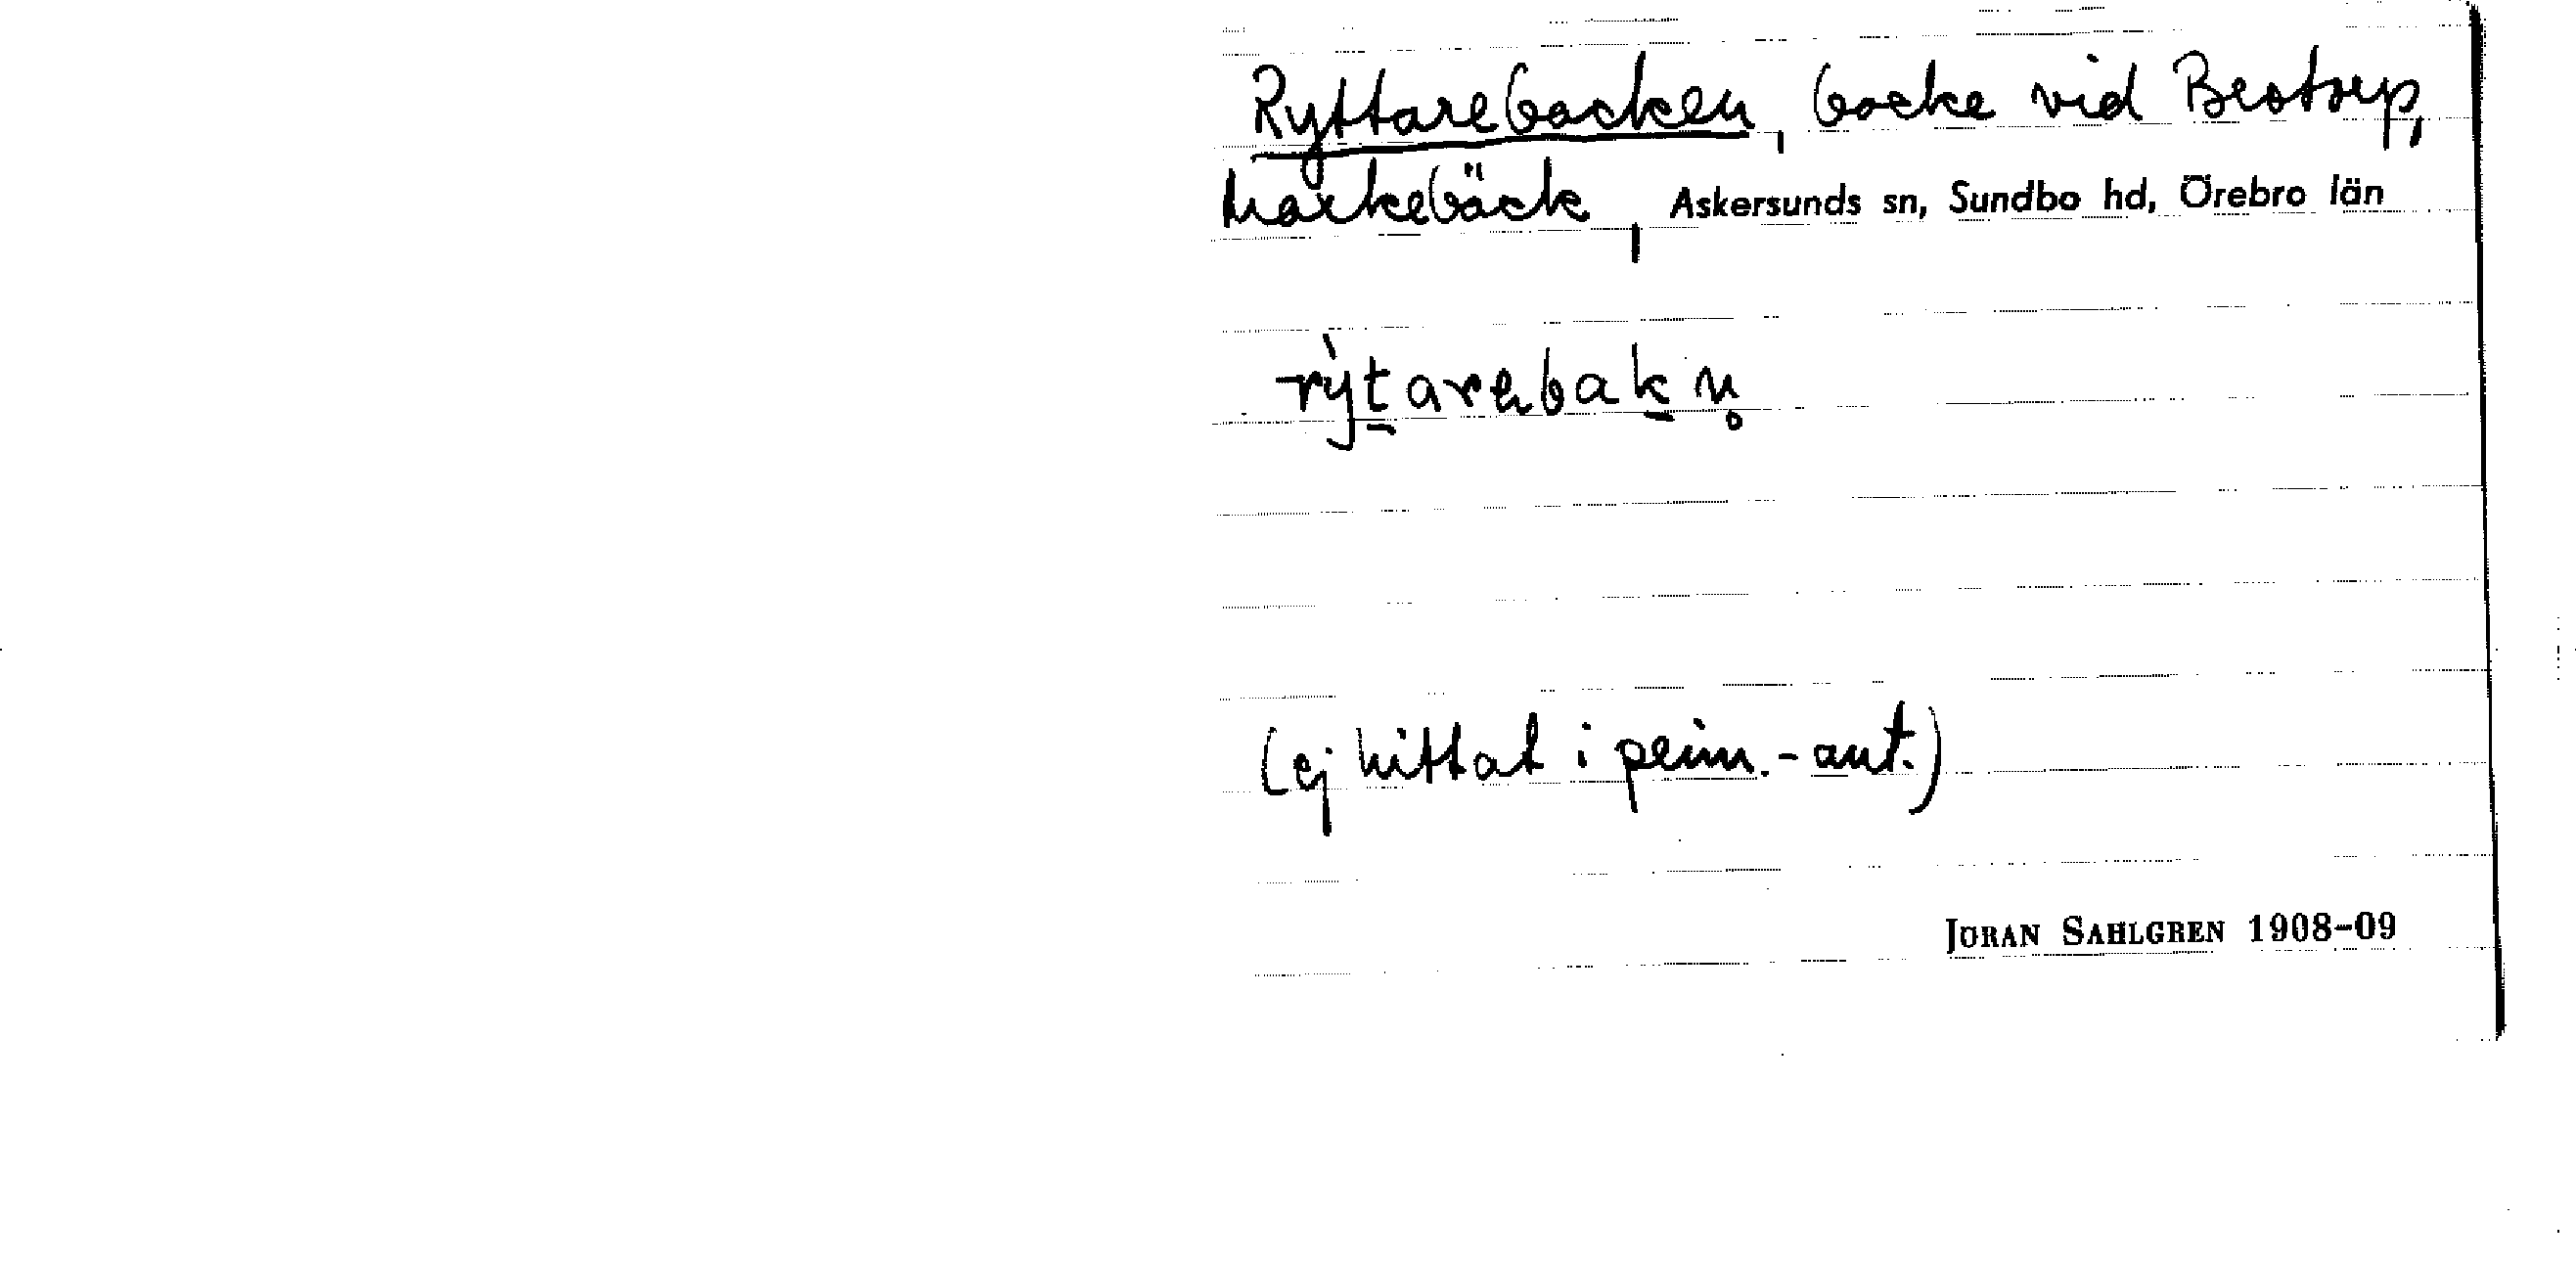 Ryttarebacken, backe vid Bastorp,
Markebäck, Askersunds sn, Sundbo hd, Örebro län
rýtarebakn̥
(ej hittat i prim.-ant.)
JORAN SAHLGREN 1908–09